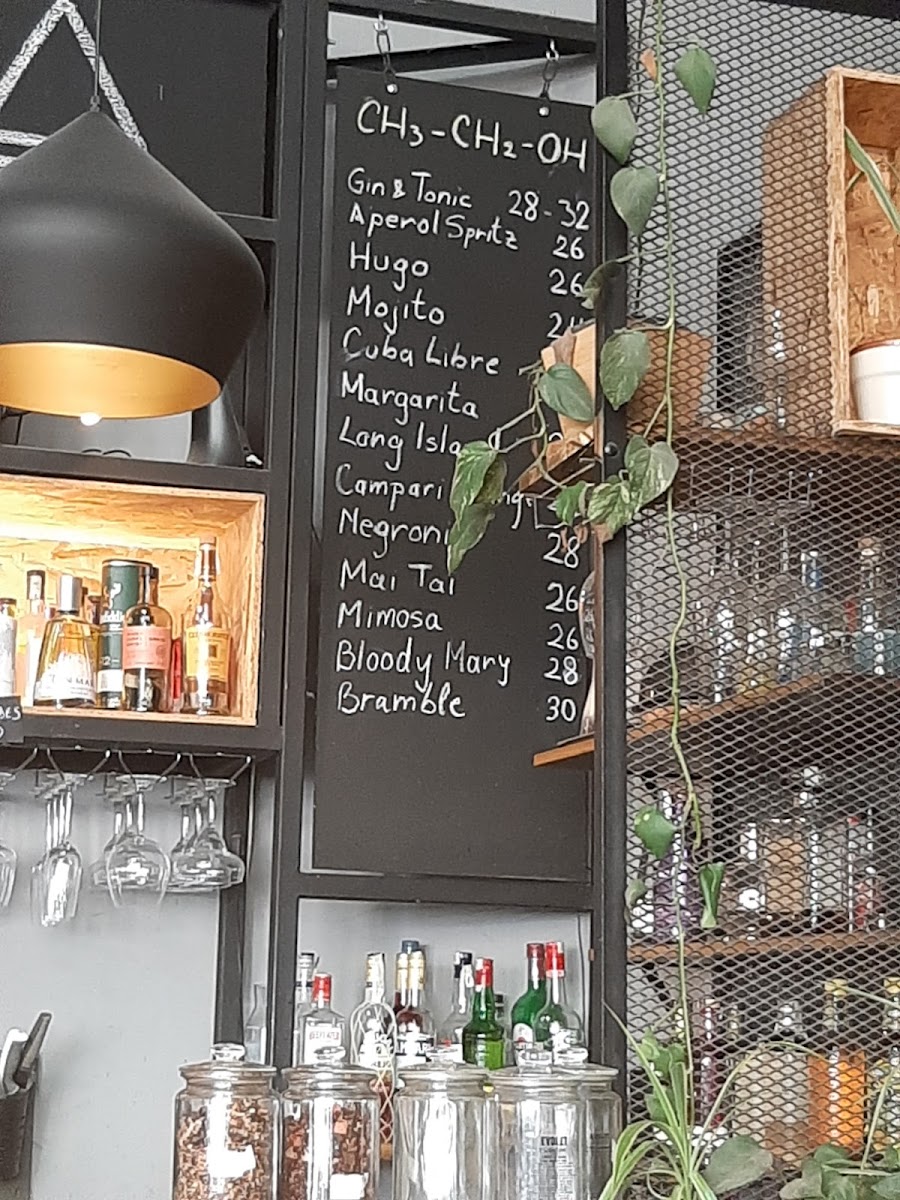 CH₃-CH₂-OH
Gin & Tonic 28-32
Aperol Spritz 26
Hugo 26
Mojito
Cuba Libre
Margarita
Long
Campari
Negroni 28
Mai Tai 26
Mimosa 26
Bloody Mary 28
Bramble 30